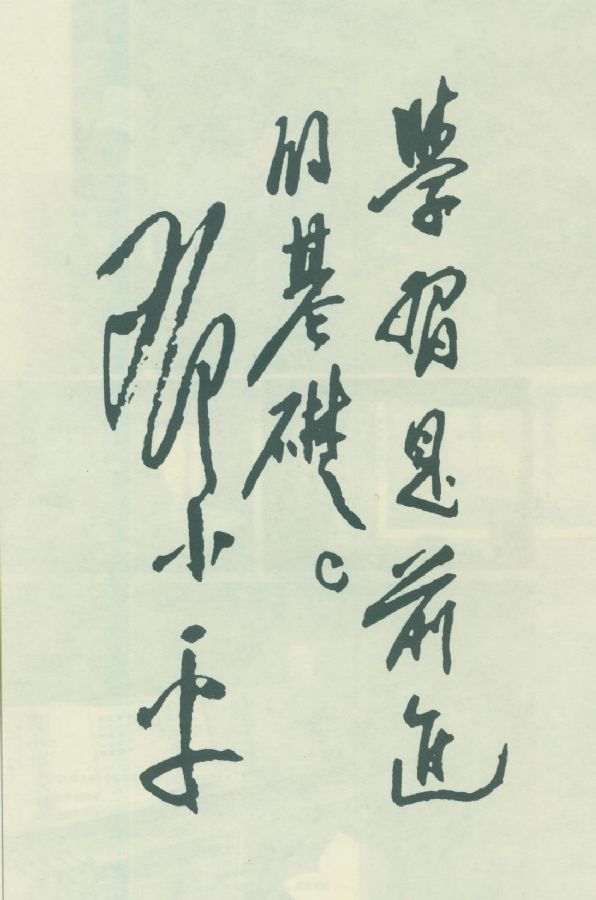 學習是前進
的基礎。
鄧小平